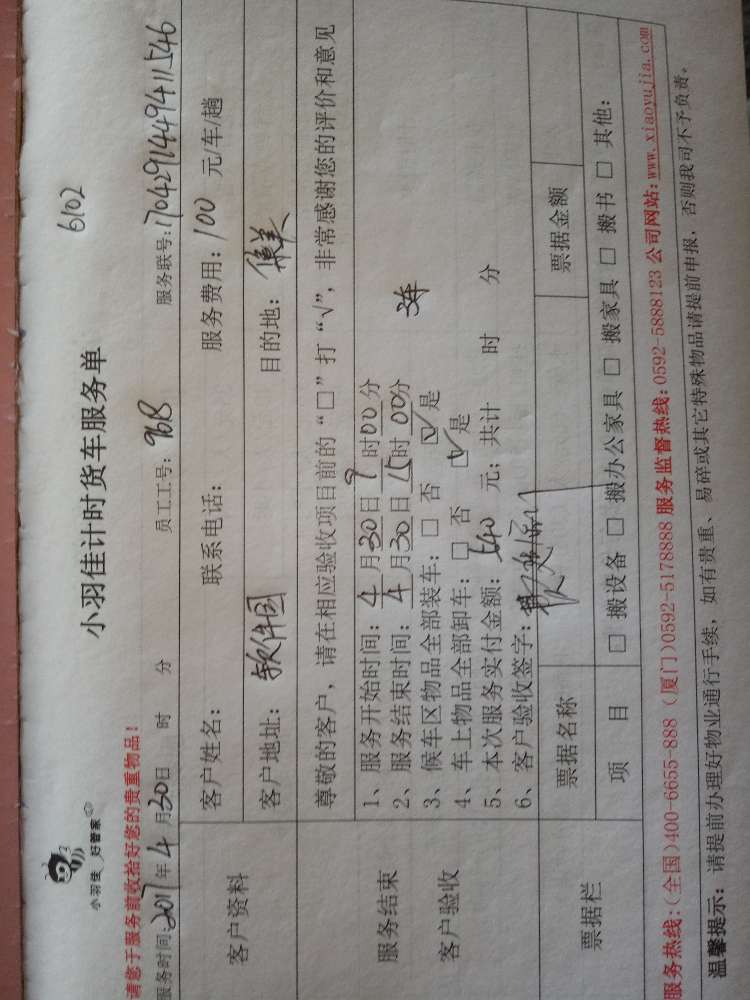 6102
小羽佳 好管家
小羽佳计时货车服务单
请您于服务前收拾好您的贵重物品！
服务时间：2017年4月30日 时 分 员工工号：968 服务联号：170429144949411546
客户资料
客户姓名： 联系电话： 服务费用：100 元/车/趟
客户地址：软件园 目的地：集美
服务结束
客户验收
尊敬的客户，请在相应验收项目前的“□”打“√”，非常感谢您的评价和意见
1、服务开始时间：4月30日9时00分
2、服务结束时间：4月30日15时00分
3、候车区物品全部装车：□ 否 ☑ 是
4、车上物品全部卸车：□ 否 ☑ 是
5、本次服务实付金额：540 元；共计 时 分
6、客户验收签字：
票据栏
票据名称 票据金额
项 目 □ 搬设备 □ 搬办公家具 □ 搬家具 □ 搬书 □ 其他：
服务热线：(全国)400-6655-888（厦门)0592-5178888 服务监督热线：0592-5888123 公司网站：www.xiaoyujia.com
温馨提示：请提前办理好物业通行手续，如有贵重、易碎或其它特殊物品请提前申报，否则我司不予负责。